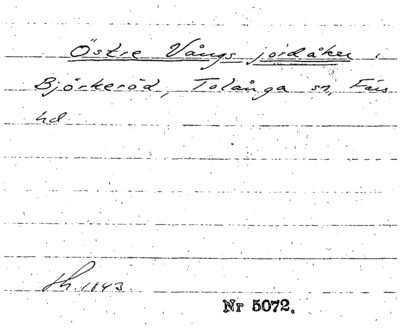 Östre Vångs jordåker i
Björkeröd, Tolånga sn, Färs
hd
Sk. 1843.
Nr 5072.